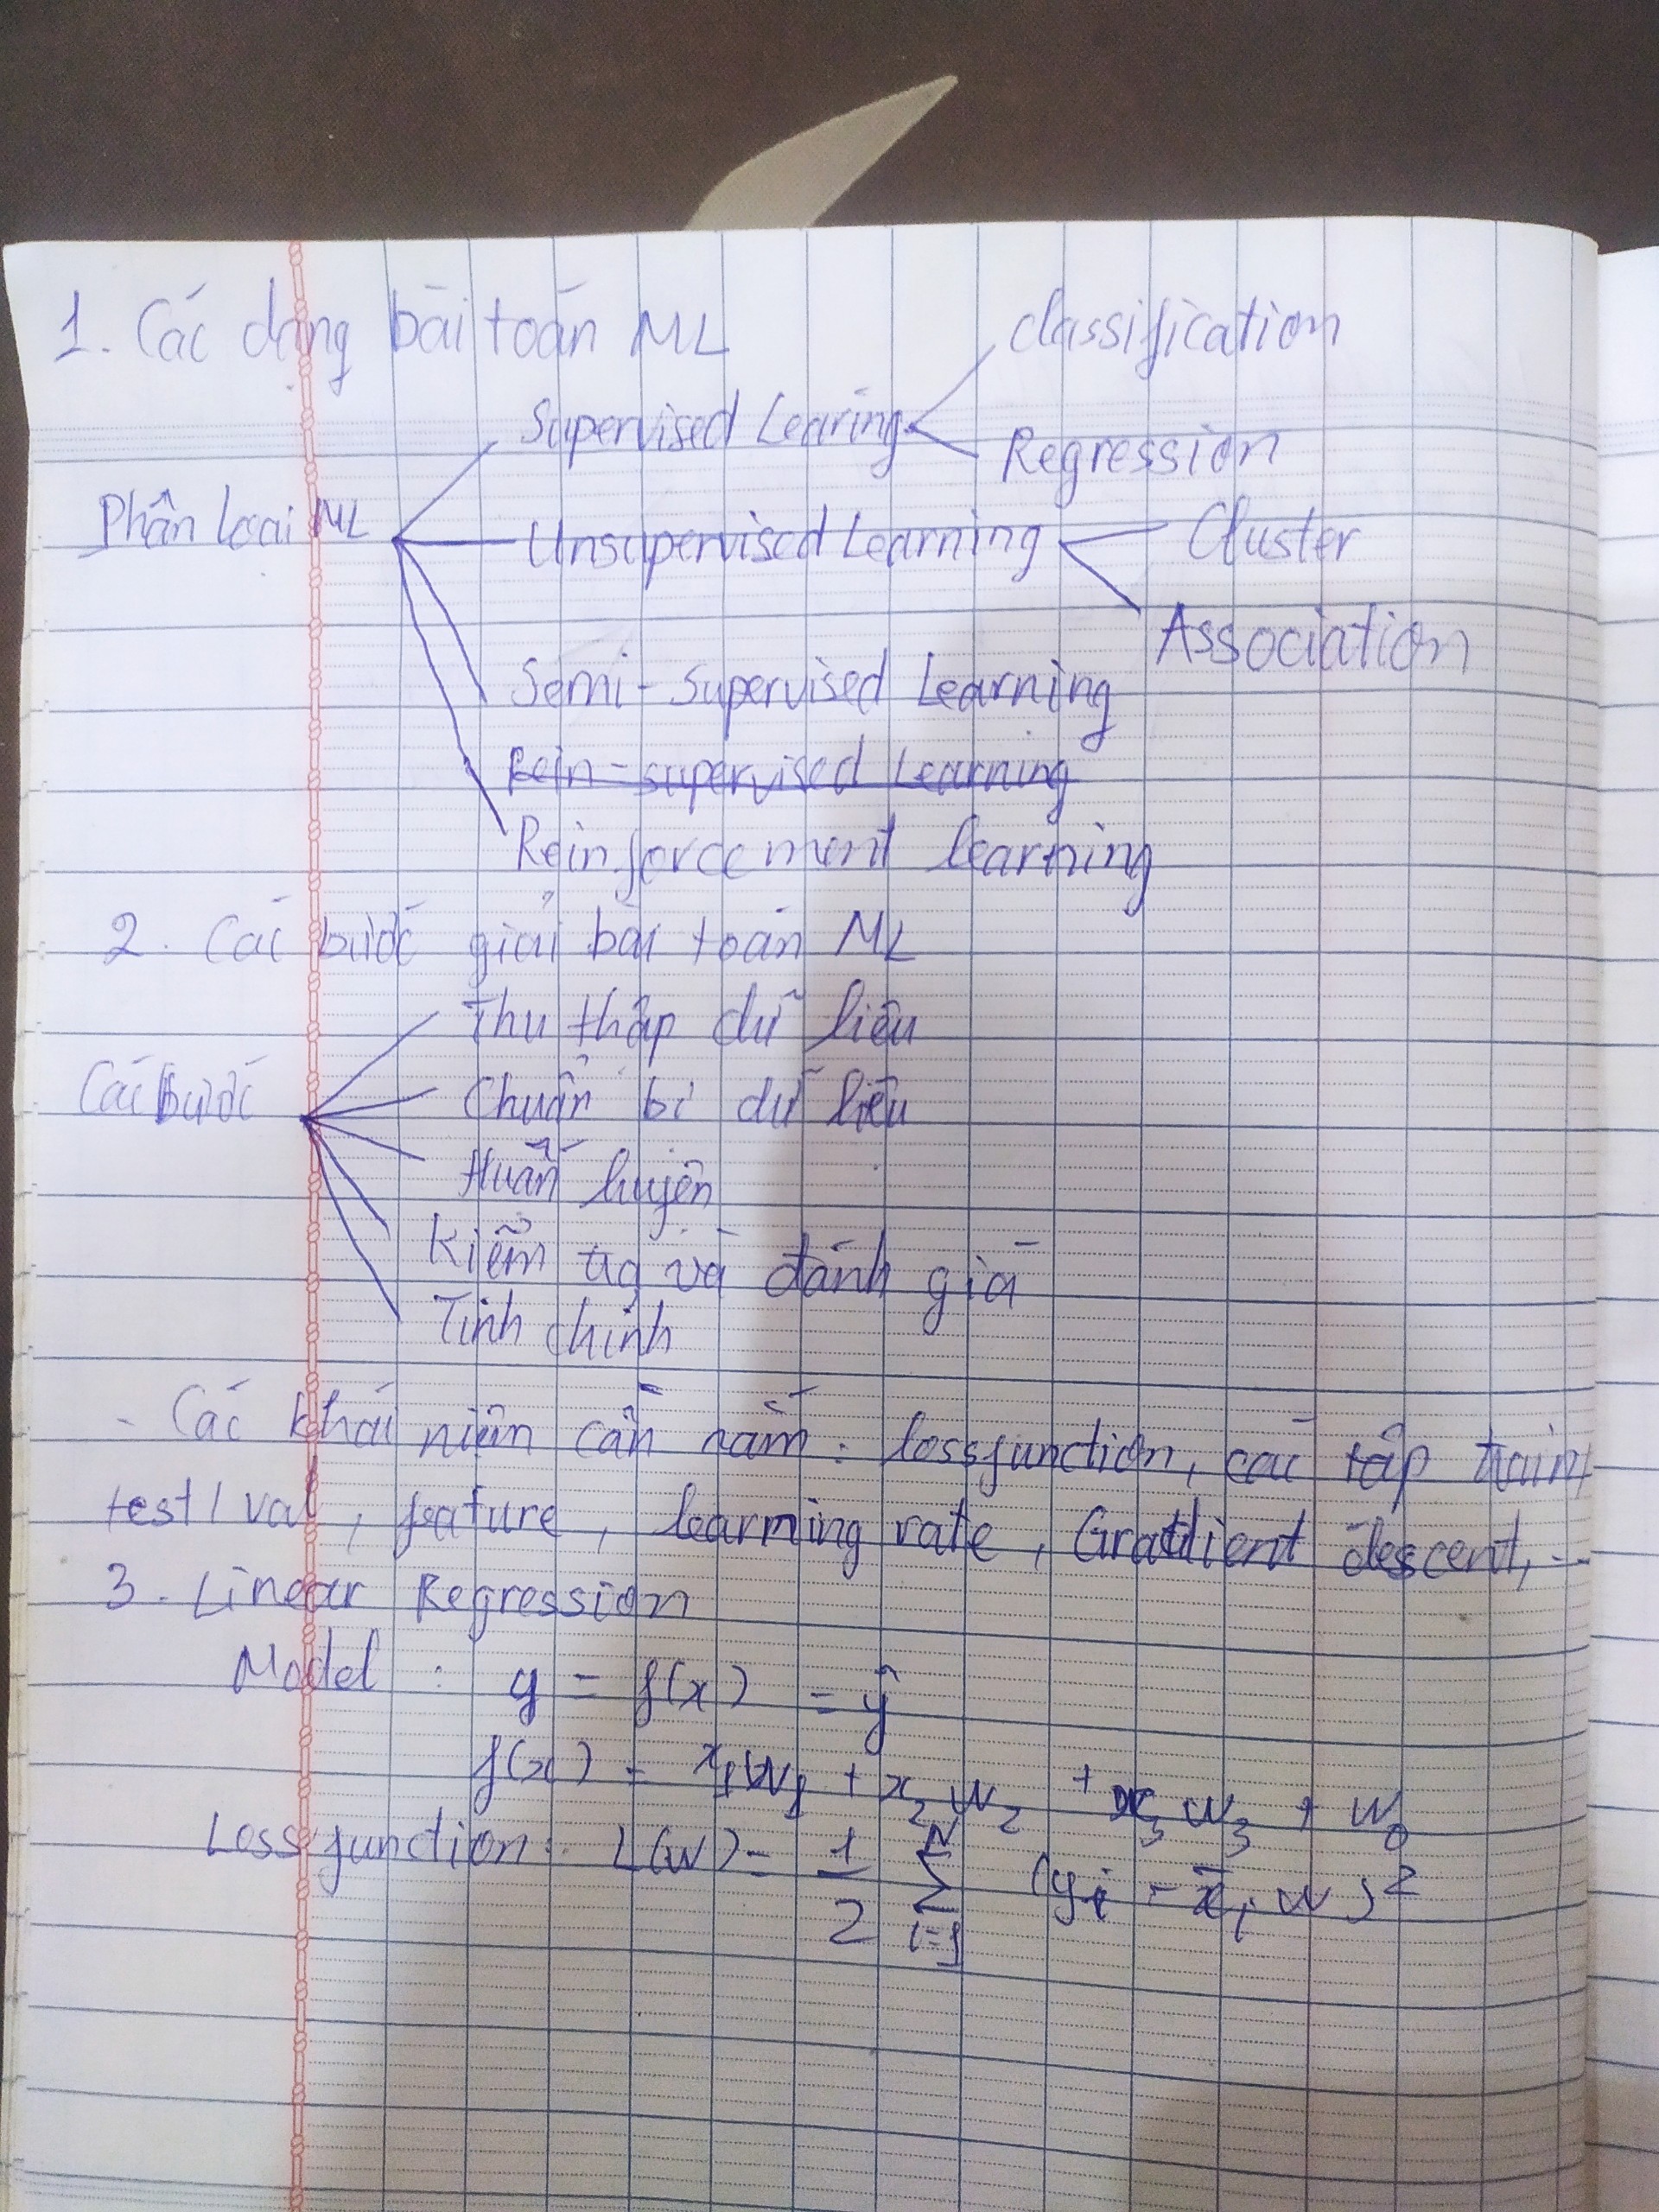 1. Các dạng bài toán ML
Classification
Supervised Learing
Regression
Phân loại ML
Unsupervised Learning
Cluster
Association
Semi-Supervised Learning
Rein-supervised Learning
Reinforcement learning
2. Các bước giải bài toán ML
Thu thập dữ liệu
Các bước
Chuẩn bị dữ liệu
Huấn luyện
Kiểm tra và đánh giá
Tinh chỉnh
- Các khái niệm cần nắm: loss function, các tập train/
test/val, feature, learning rate, Gradient descent,...
3. Linear Regression
Model : y = f(x) = ŷ
f(x) = x₁w₁ + x₂w₂ + x₃w₃ + w₀
Loss function: L(w) = 1/2 ∑ᵢ₌₁ᴺ (yᵢ - x̄ᵢ w)²